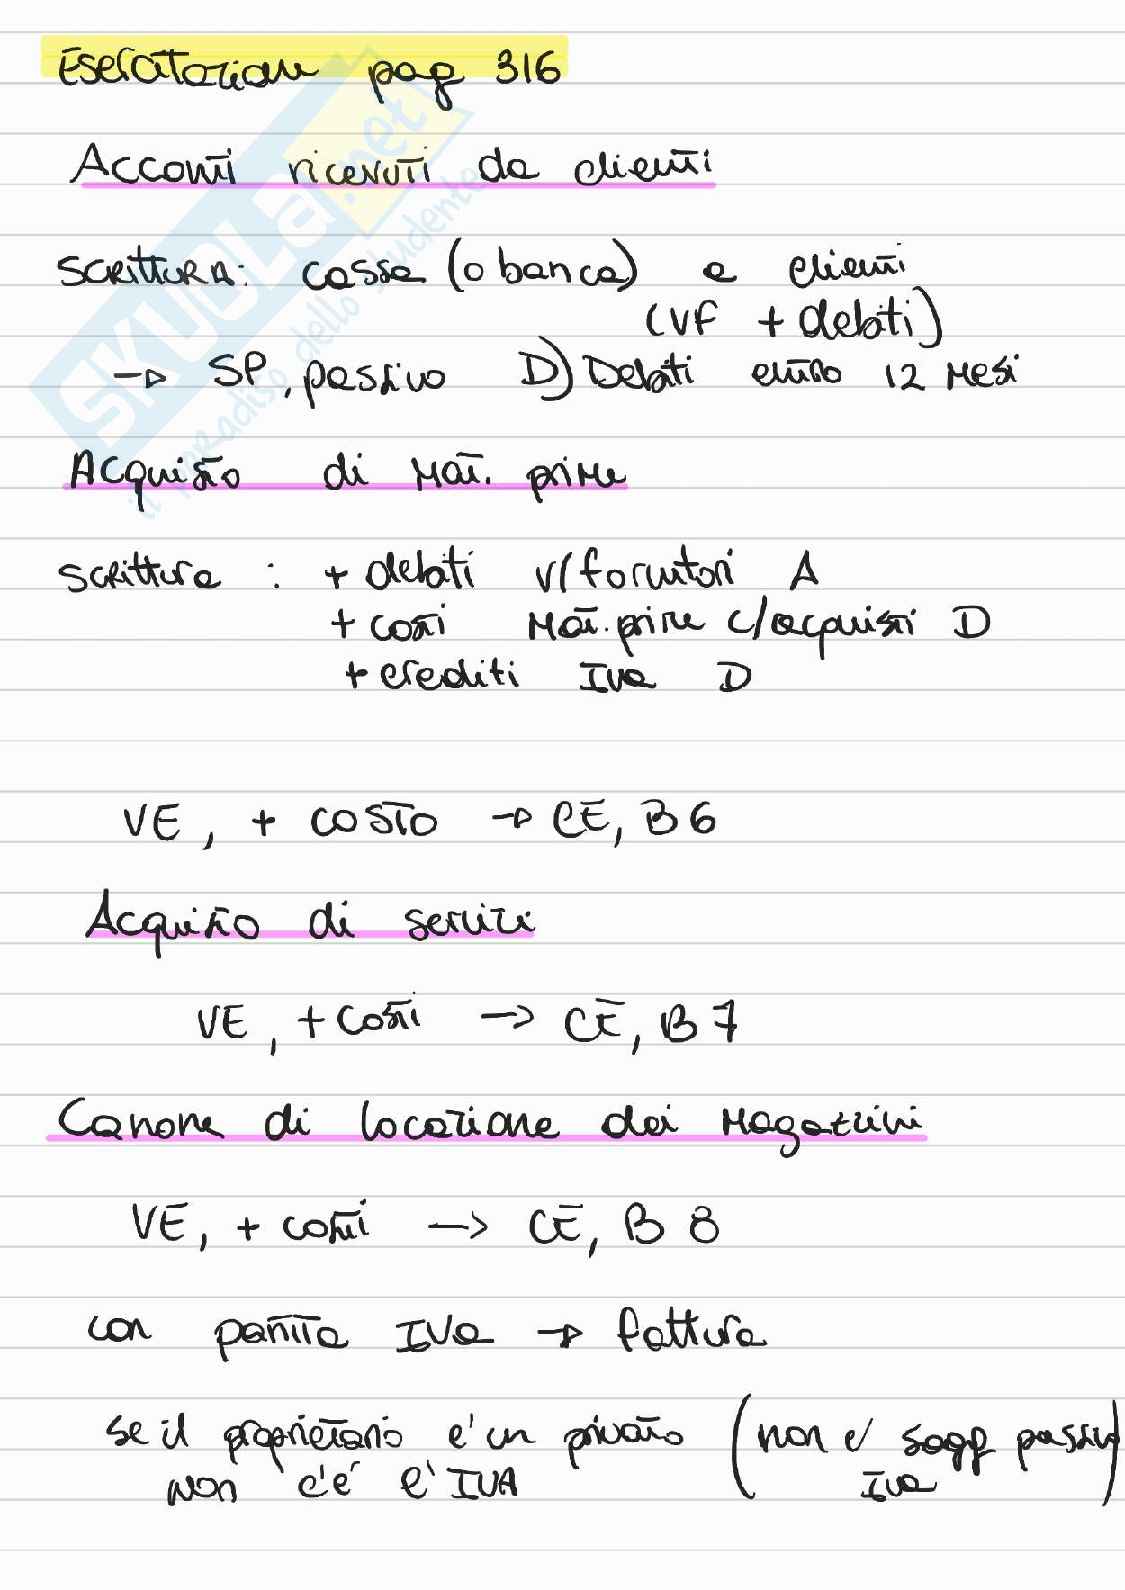 Esercitazione pag 316
Acconti ricevuti da clienti
SCRITTURA: cassa (o banca) a clienti
(VF + debiti)
→ SP, passivo D) Debiti entro 12 mesi
Acquisto di mat. prime
scrittura : + debiti v/fornitori A
+ costi mat. prime c/acquisti D
+ crediti IVA D
VE, + COSTO → CE, B6
Acquisto di servizi
VE, + costi → CE, B7
Canone di locazione dei magazzini
VE, + costi → CE, B 8
con partita IVA → fattura
se il proprietario e' un privato (non e' sogg passivo
non c'e' l'IVA IVA)
SKUOLA.net
il paradiso dello studente